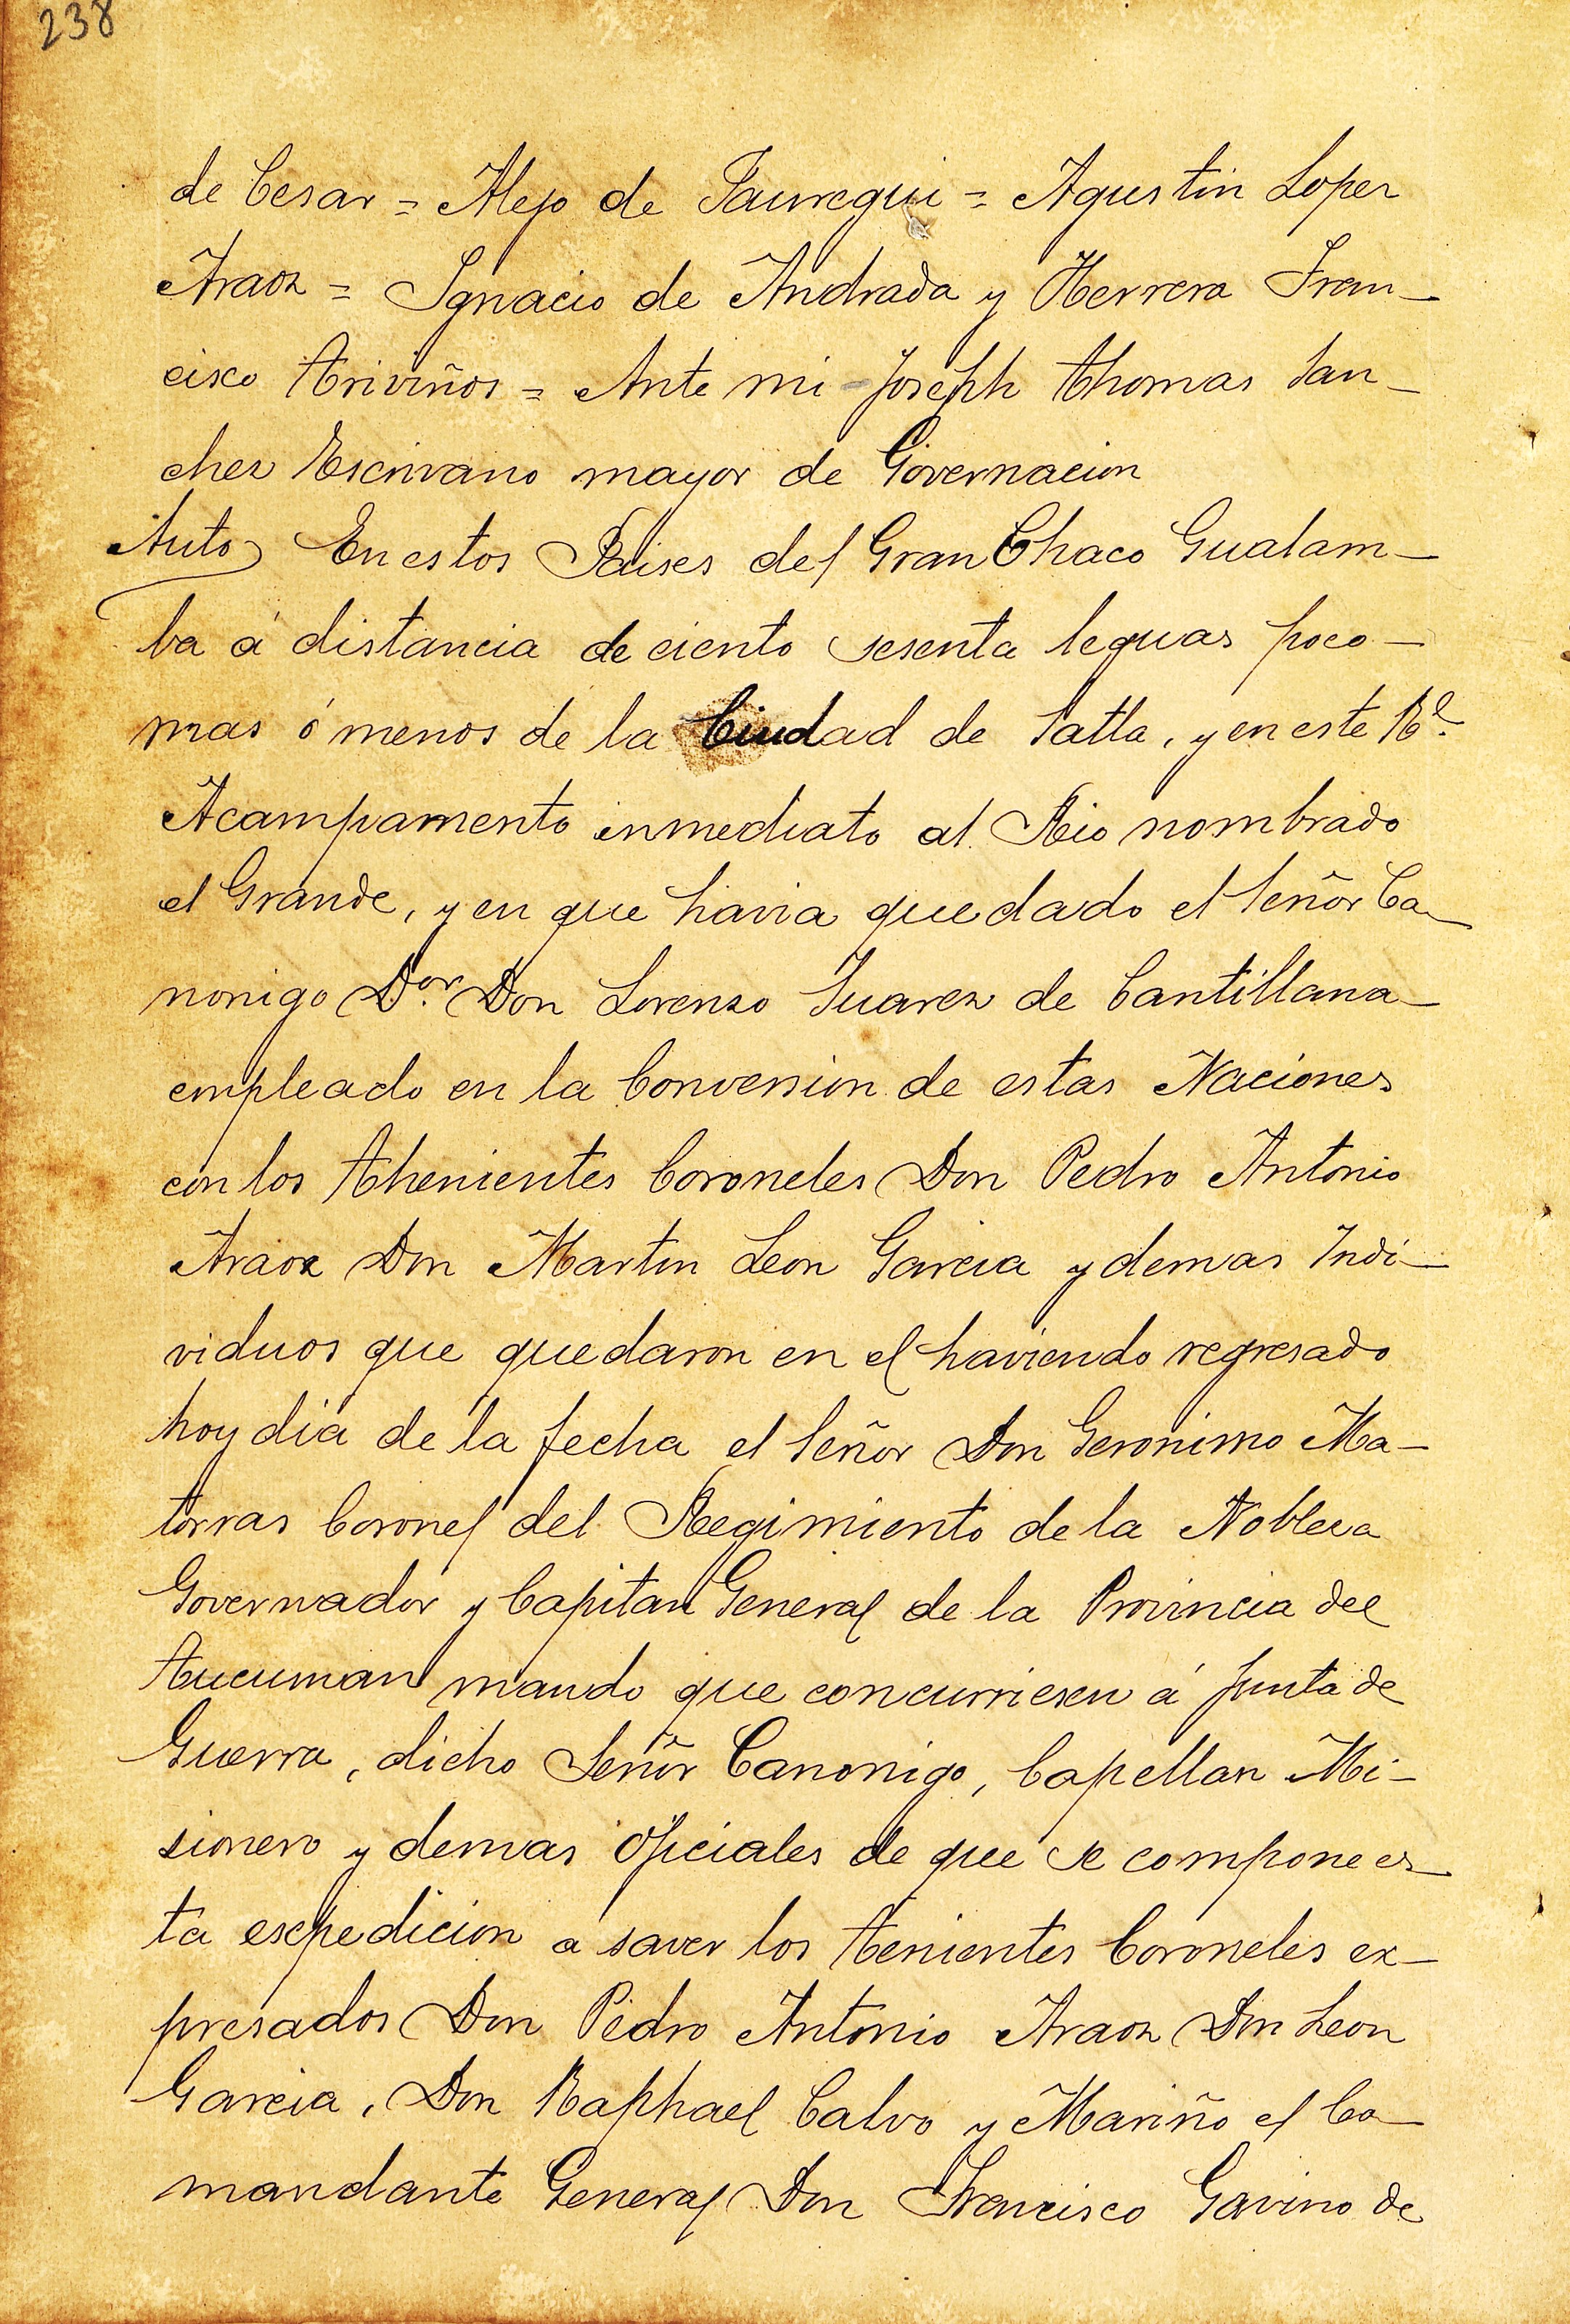 238
de Cesar = Alejo de Jauregui = Agustin Lopez
Araoz = Ignacio de Andrada y Herrera Fran-
cisco Triviños = Ante mi Joseph Thomas San-
chez Escrivano mayor de Governacion
Auto En estos Paises del Gran Chaco Gualam-
ba á distancia de ciento sesenta leguas poco-
mas ó menos de la Ciudad de Salta, y en este Rl.
Acampamento inmediato al Rio nombrado
el Grande, y en que havia quedado el Señor Ca-
nonigo Dor. Don Lorenzo Suarez de Cantillana-
empleado en la Conversion de estas Naciones
con los Thenientes Coroneles Don Pedro Antonio
Araoz Don Martin Leon Garcia y demas Indi-
viduos que quedaron en el haviendo regresado
hoy dia de la fecha el Señor Don Geronimo Ma-
torras Coronel del Regimiento de la Nobleza
Governador y Capitan General de la Provincia del
Tucuman mando que concurriesen á Junta de
Guerra, dicho Señor Canonigo, Capellan Mi-
sionero y demas Oficiales de que se compone es-
ta escpedicion a saver los Tenientes Coroneles ex-
presados Don Pedro Antonio Araoz Don Leon
Garcia, Don Raphael Calvo y Mariño el Co-
mandante General Don Francisco Gavino de